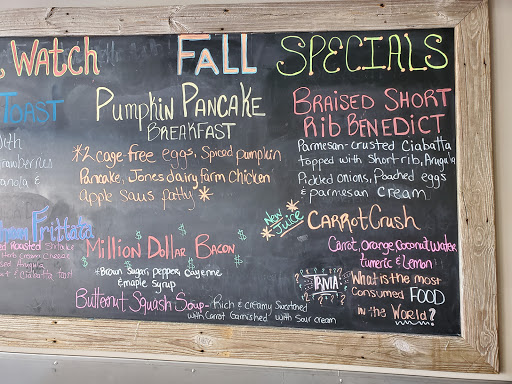 Watch
FALL SPECIALS
TOAST
with
& 
Pumpkin PANCAKE
BREAKFAST
*2 cage free eggs, Spiced pumpkin
Pancake, Jones dairy farm Chicken
apple saus patty *
BRAISED SHORT
RIB BENEDICT
Parmesan-crusted Ciabatta
topped with short rib, Arugula
Pickled onions, Poached eggs
& parmesan cream
Frittata
Roasted
& Ciabatta toast
MILLION DOLLAR BACON
*Brown Sugar, pepper, Cayenne
& maple Syrup
New
Juice
CARROT Crush
Carrot, Orange, Coconut Water
Turmeric & Lemon
Butternut Squash Soup - Rich & creamy Sweetened
with Carrot Garnished with Sour cream
TRIVIA:
What is the most
Consumed FOOD
in the World?